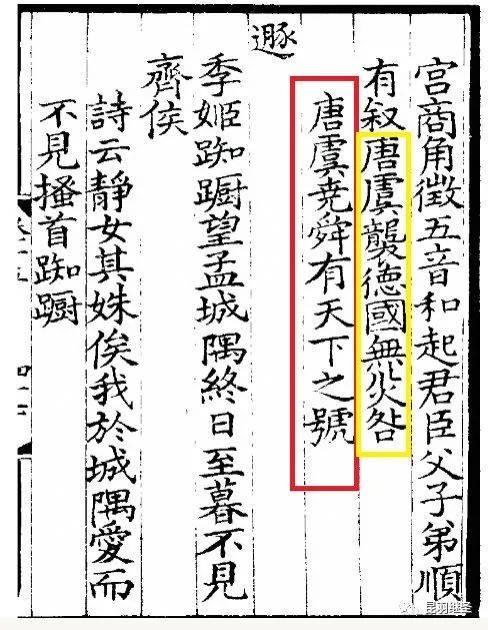 宫商角徵五音和起君臣父子弟順
有叙唐虞襲德國無災咎
唐虞尭舜有天下之號
遯
季姬踟躕望孟城隅終日至暮不見
齊侯
詩云靜女其姝俟我於城隅愛而
不見搔首踟躕
昆羽继圣